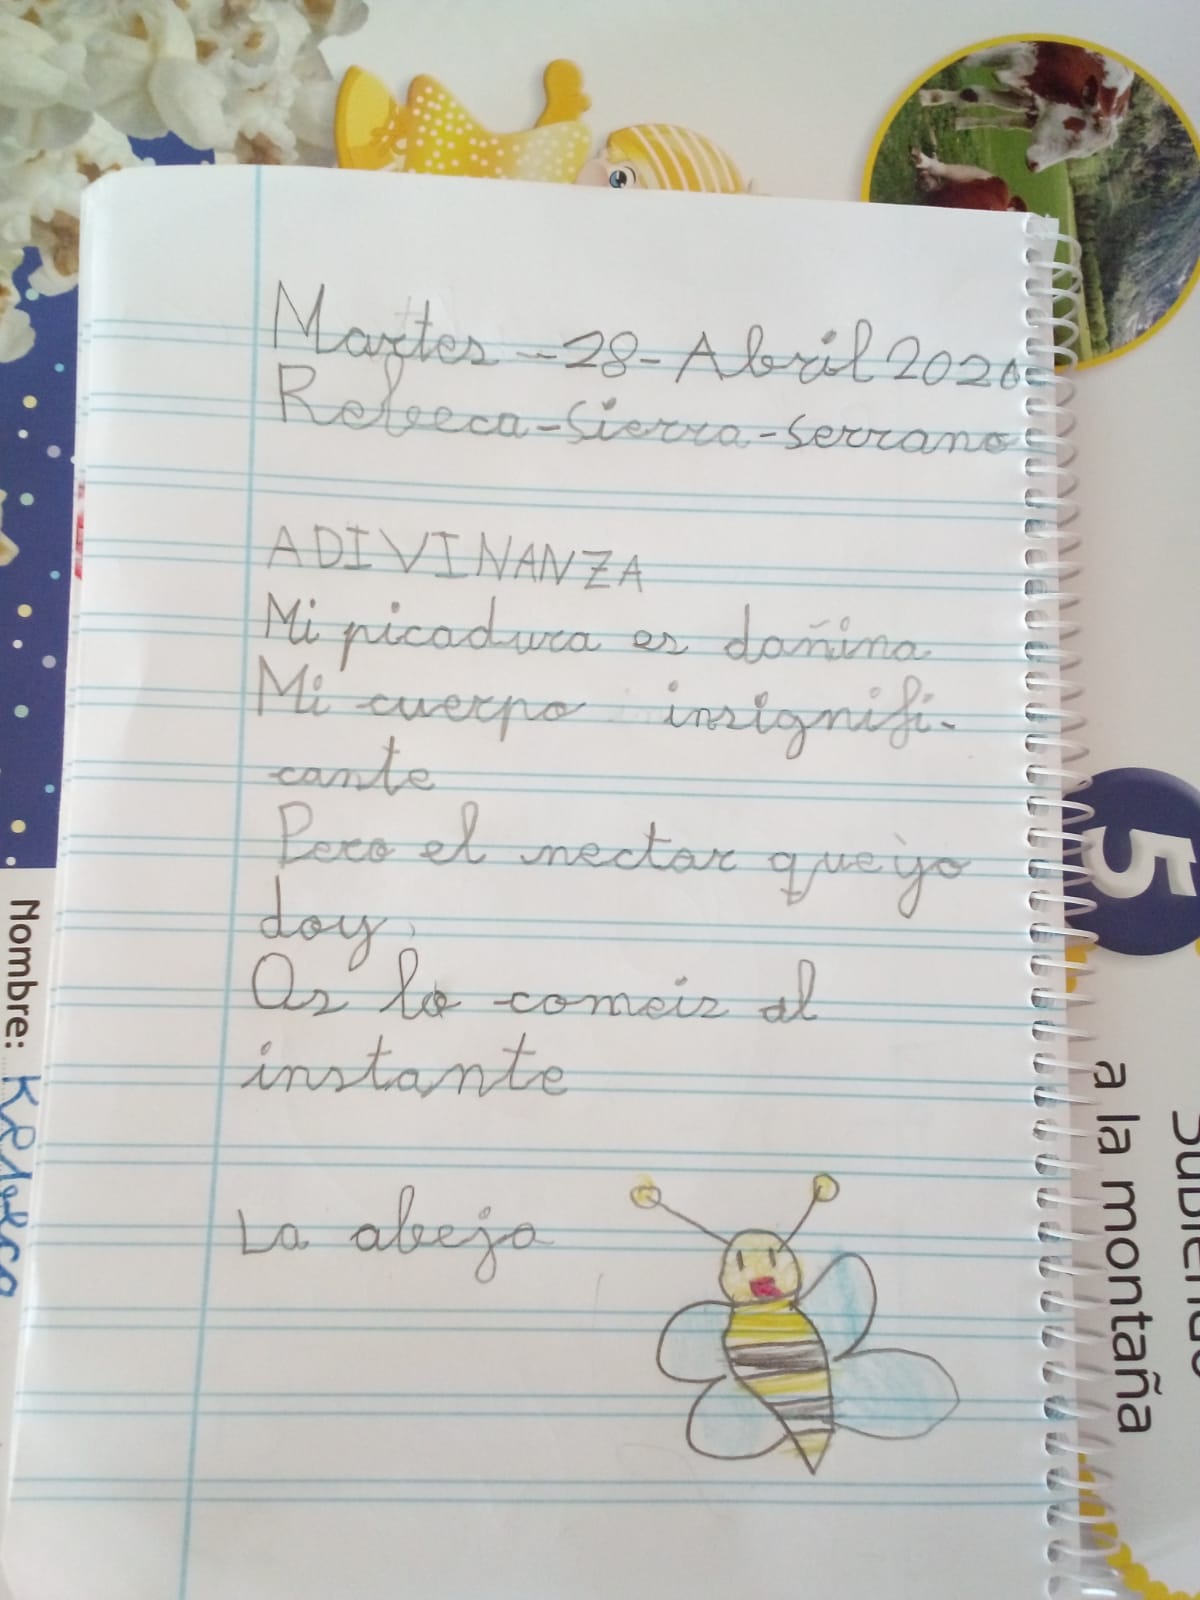 Martes-28-Abril 2020
Rebeca-Sierra-Serrano
ADIVINANZA
Mi picadura es dañina
Mi cuerpo insignifi-
cante
Pero el nectar que yo
doy,
Os lo comeis al
instante
La abeja
Nombre: Rebeca
5
Subiendo
a la montaña